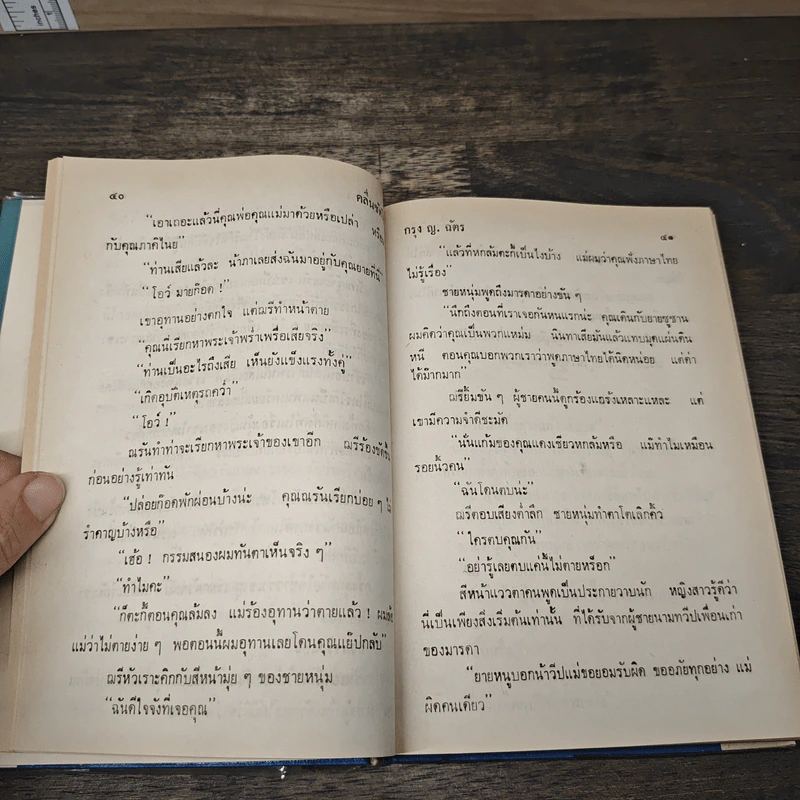 inches
๔๐
คลื่นชีวิต
"เอาเถอะแล้วนี่คุณพ่อคุณแม่มาด้วยหรือเปล่า หรือ
กับคุณภาคิไนย"
"ท่านเสียแล้วละ น้าภาเลยส่งฉันมาอยู่กับคุณยายที่นี่"
"โอว์ มายก๊อด !"
เขาอุทานอย่างตกใจ แต่ฌรีทำหน้าตาย
"คุณนี่เรียกหาพระเจ้าพร่ำเพรื่อเสียจริง"
"ท่านเป็นอะไรถึงเสีย เห็นยังแข็งแรงทั้งคู่"
"เกิดอุบติเหตุรถคว่ำ"
"โอว์ !"
ณรันทำท่าจะเรียกหาพระเจ้าของเขาอีก ฌรีร้องขัดขึ้น
ก่อนอย่างรู้เท่าทัน
"ปล่อยก๊อดพักผ่อนบ้างน่ะ คุณณรันเรียกบ่อย ๆ ไม่
รำคาญบ้างหรือ"
"เฮ้อ ! กรรมสนองผมทันตาเห็นจริง ๆ"
"ทำไมคะ"
"ก็ตะกี้ตอนคุณล้มลง แม่ร้องอุทานว่าตายแล้ว ! ผมล้อ
แม่ว่าไม่ตายง่าย ๆ พอตอนนี้ผมอุทานเลยโดนคุณแย๊ปกลับ"
ฌรีหัวเราะคิกกับสีหน้ามุ่ย ๆ ของชายหนุ่ม
"ฉันดีใจจังที่เจอคุณ"
กรุง ญ. ฉัตร
๔๑
"แล้วที่หกล้มคะก็เป็นไงบ้าง แม่ผมว่าคุณฟังภาษาไทย
ไม่รู้เรื่อง"
ชายหนุ่มพูดถึงมารดาอย่างขัน ๆ
"นึกถึงตอนที่เราเจอกันหนแรกน่ะ คุณเดินกับยายซูซาน
ผมคิดว่าคุณเป็นพวกแหม่ม นินทาเสียมันแล้วแทบมุดแผ่นดิน
หนี ตอนคุณบอกพวกเราว่าพูดภาษาไทยได้นิดหน่อย แต่ด่า
ได้มากมาก"
ฌรียิ้มขัน ๆ ผู้ชายคนนี้ดูกร้องแร้งเหลาะแหละ แต่
เขามีความจำดีชะมัด
"นั่นแก้มของคุณแดงเชียวหกล้มหรือ แม้ทำไมเหมือน
รอยนิ้วคน"
"ฉันโดนตบน่ะ"
ฌรีตอบเสียงต่ำลึก ชายหนุ่มทำตาโตเลิกคิ้ว
"ใครตบคุณกัน"
"อย่ารู้เลยตบแค่นี้ไม่ตายหร็อก"
สีหน้าแววตาคนพูดเป็นประกายวาบนัก หญิงสาวรู้ดีว่า
นี่เป็นเพียงสิ่งเริ่มต้นเท่านั้น ที่ได้รับจากผู้ชายนามทวีปเพื่อนเก่า
ของมารดา
"ยายหนูบอกน้าวีปแม่ขอยอมรับผิด ขออภัยทุกอย่าง แม่
ผิดคนเดียว"